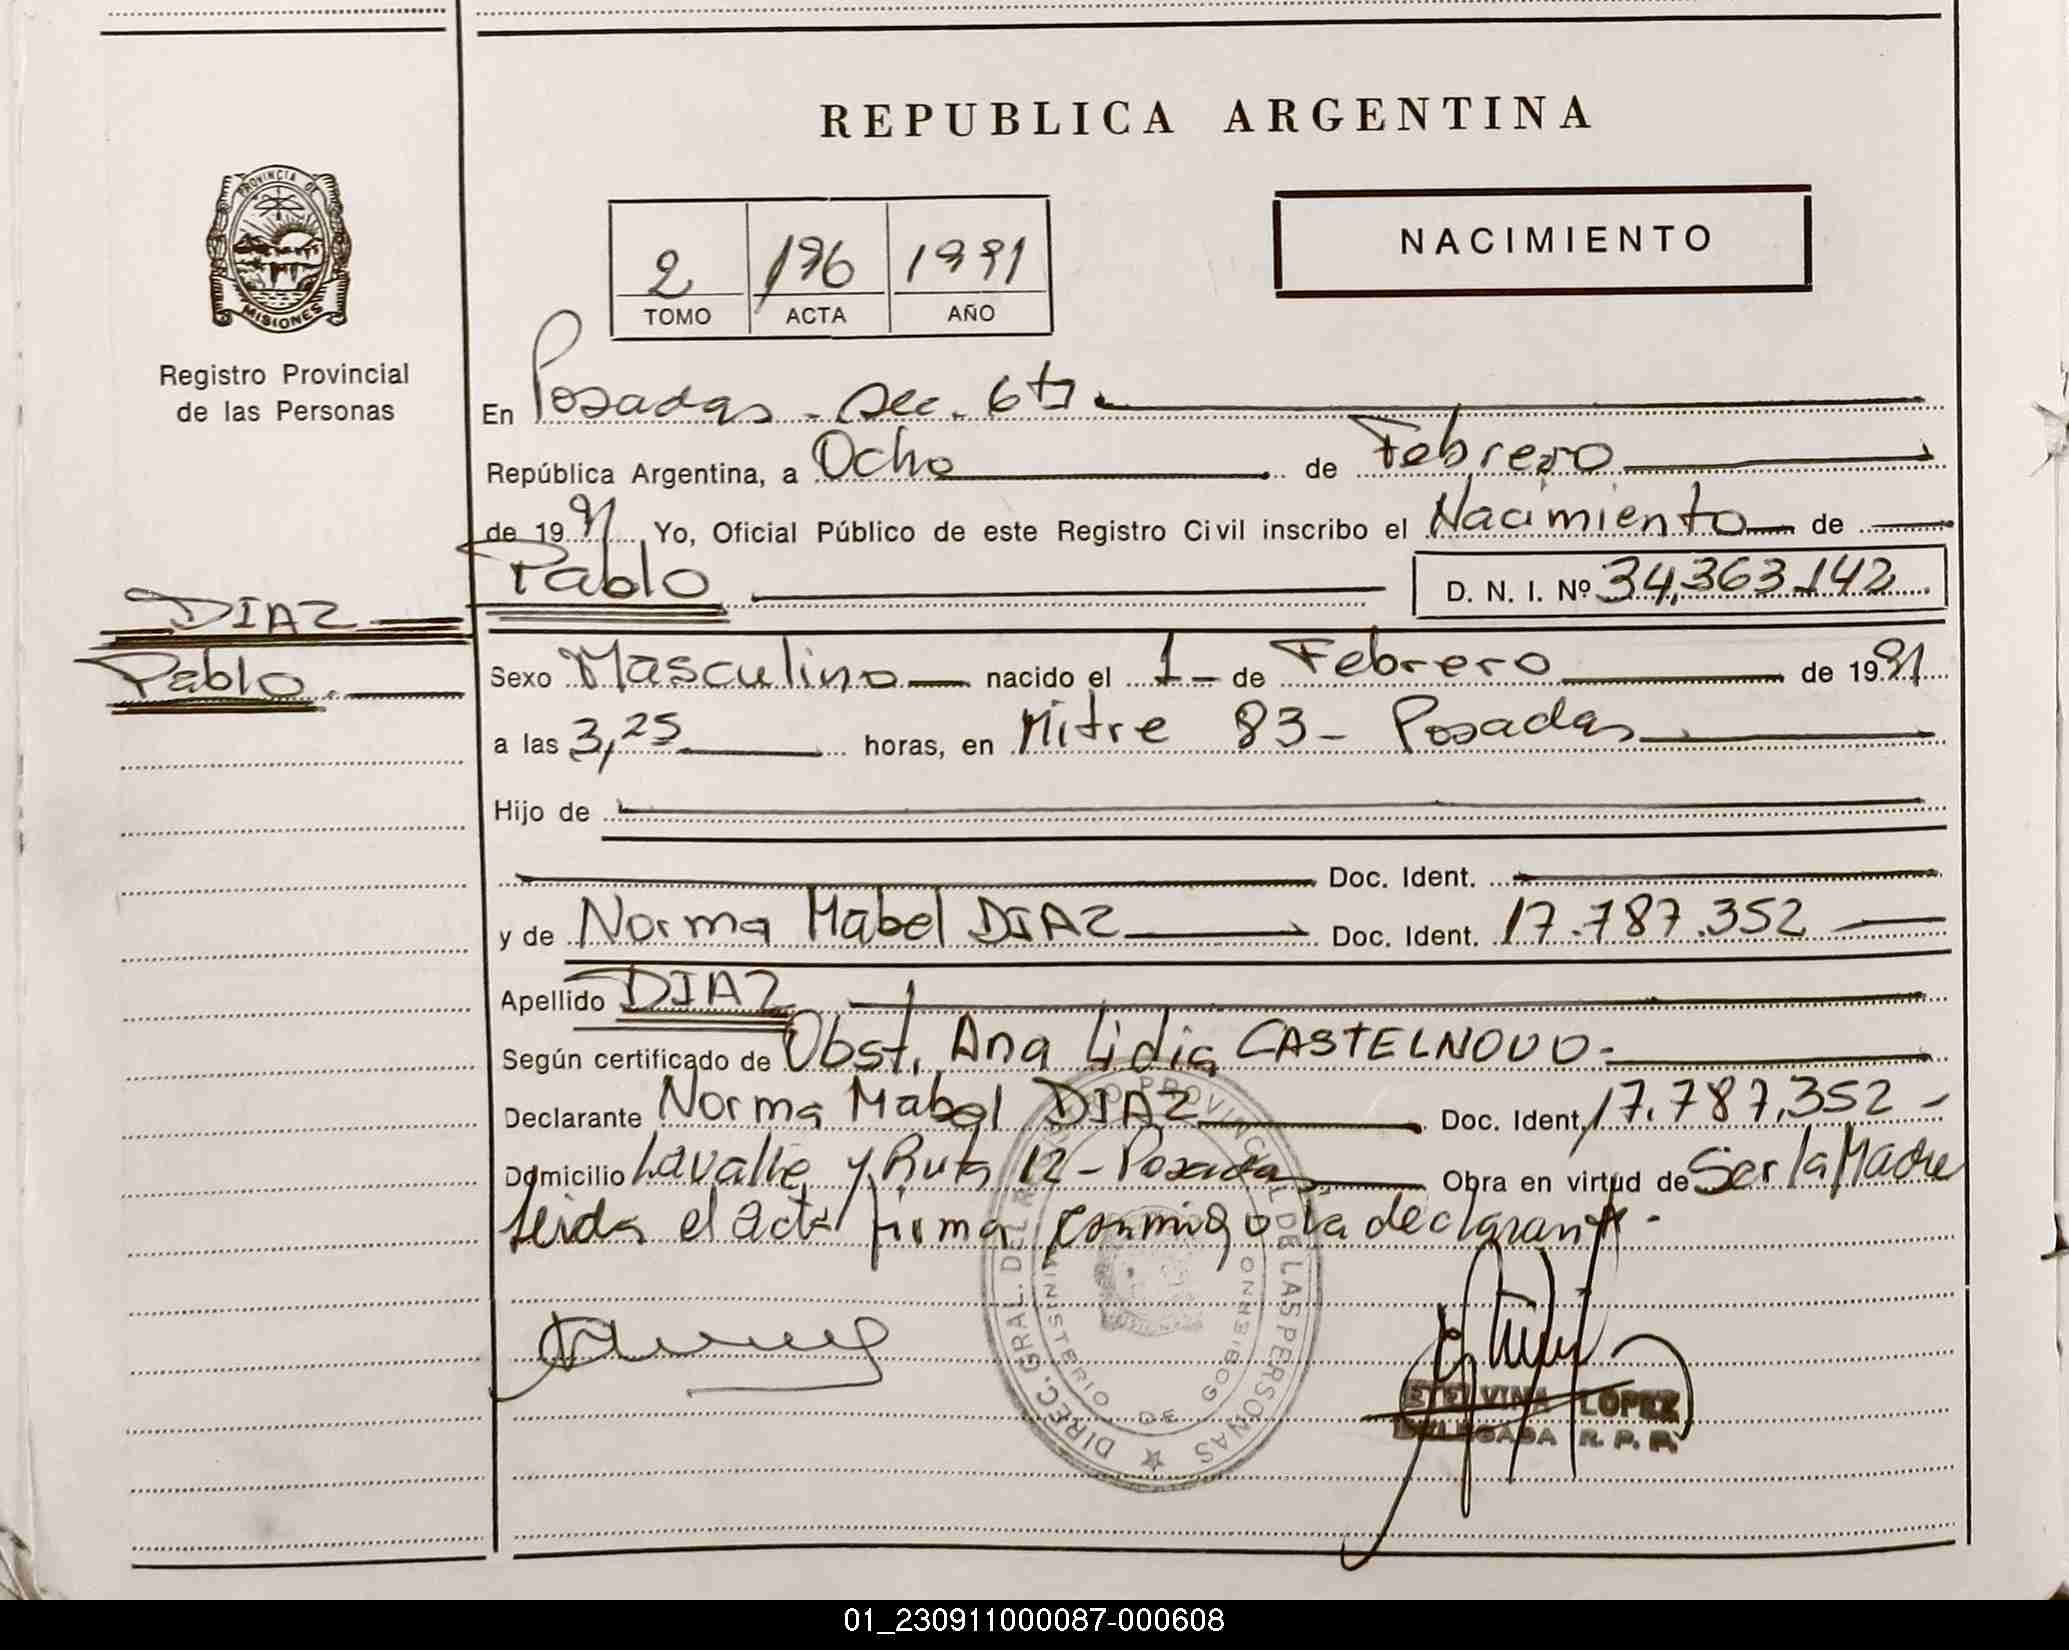 REPUBLICA ARGENTINA
PROVINCIA DE
MISIONES
Registro Provincial
de las Personas
2 196 1991
TOMO ACTA AÑO
NACIMIENTO
En Posadas - Sec. 6ta
República Argentina, a Ocho de Febrero
de 1991 Yo, Oficial Público de este Registro Civil inscribo el Nacimiento de
Pablo D. N. I. Nº 34,363.142
DIAZ
Pablo.
Sexo Masculino nacido el 1 - de Febrero de 1991
a las 3,25 horas, en Mitre 83 - Posadas
Hijo de
Doc. Ident.
y de Norma Mabel DIAZ Doc. Ident. 17.787.352
Apellido DIAZ
Según certificado de Obst. Ana Lidia CASTELNOVO -
Declarante Norma Mabel DIAZ Doc. Ident. 17.787.352 -
Domicilio Lavalle y Ruta 12 - Posadas Obra en virtud de Ser la Madre
leida el acta firma conmigo la declarante -
DIREC. GRAL. DEL REGISTRO PROVINCIAL DE LAS PERSONAS
MINISTERIO DE GOBIERNO
ETELVINA LOPEZ
DELEGADA R. P. P.
01_230911000087-000608